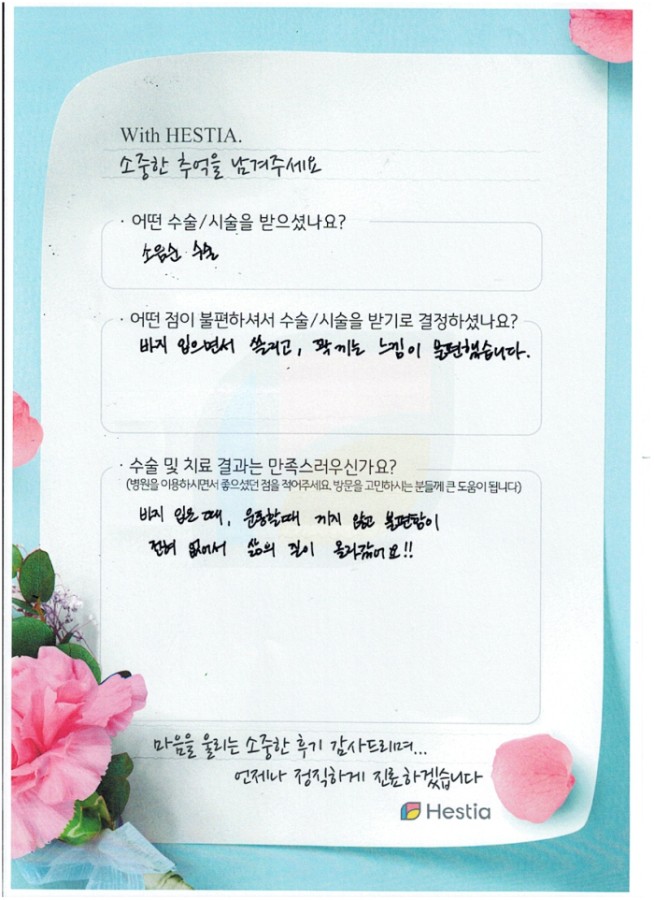 With HESTIA.
소중한 추억을 남겨주세요
· 어떤 수술/시술을 받으셨나요?
소음순 수술
· 어떤 점이 불편하셔서 수술/시술을 받기로 결정하셨나요?
바지 입으면서 쓸리고, 꽉 끼는 느낌이 불편했습니다.
· 수술 및 치료 결과는 만족스러우신가요?
(병원을 이용하시면서 좋으셨던 점을 적어주세요. 방문을 고민하시는 분들께 큰 도움이 됩니다)
바지 입을 때, 운동할때 끼지 않고 불편함이
전혀 없어서 삶의 질이 올라갔어요!!
마음을 울리는 소중한 후기 감사드리며...
언제나 정직하게 진료하겠습니다
Hestia